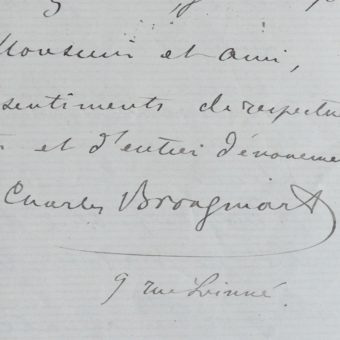 Monsieur et ami,
sentiments de respectu
et d'entier dévoueme
Charles Brongniart
9 rue Linné.